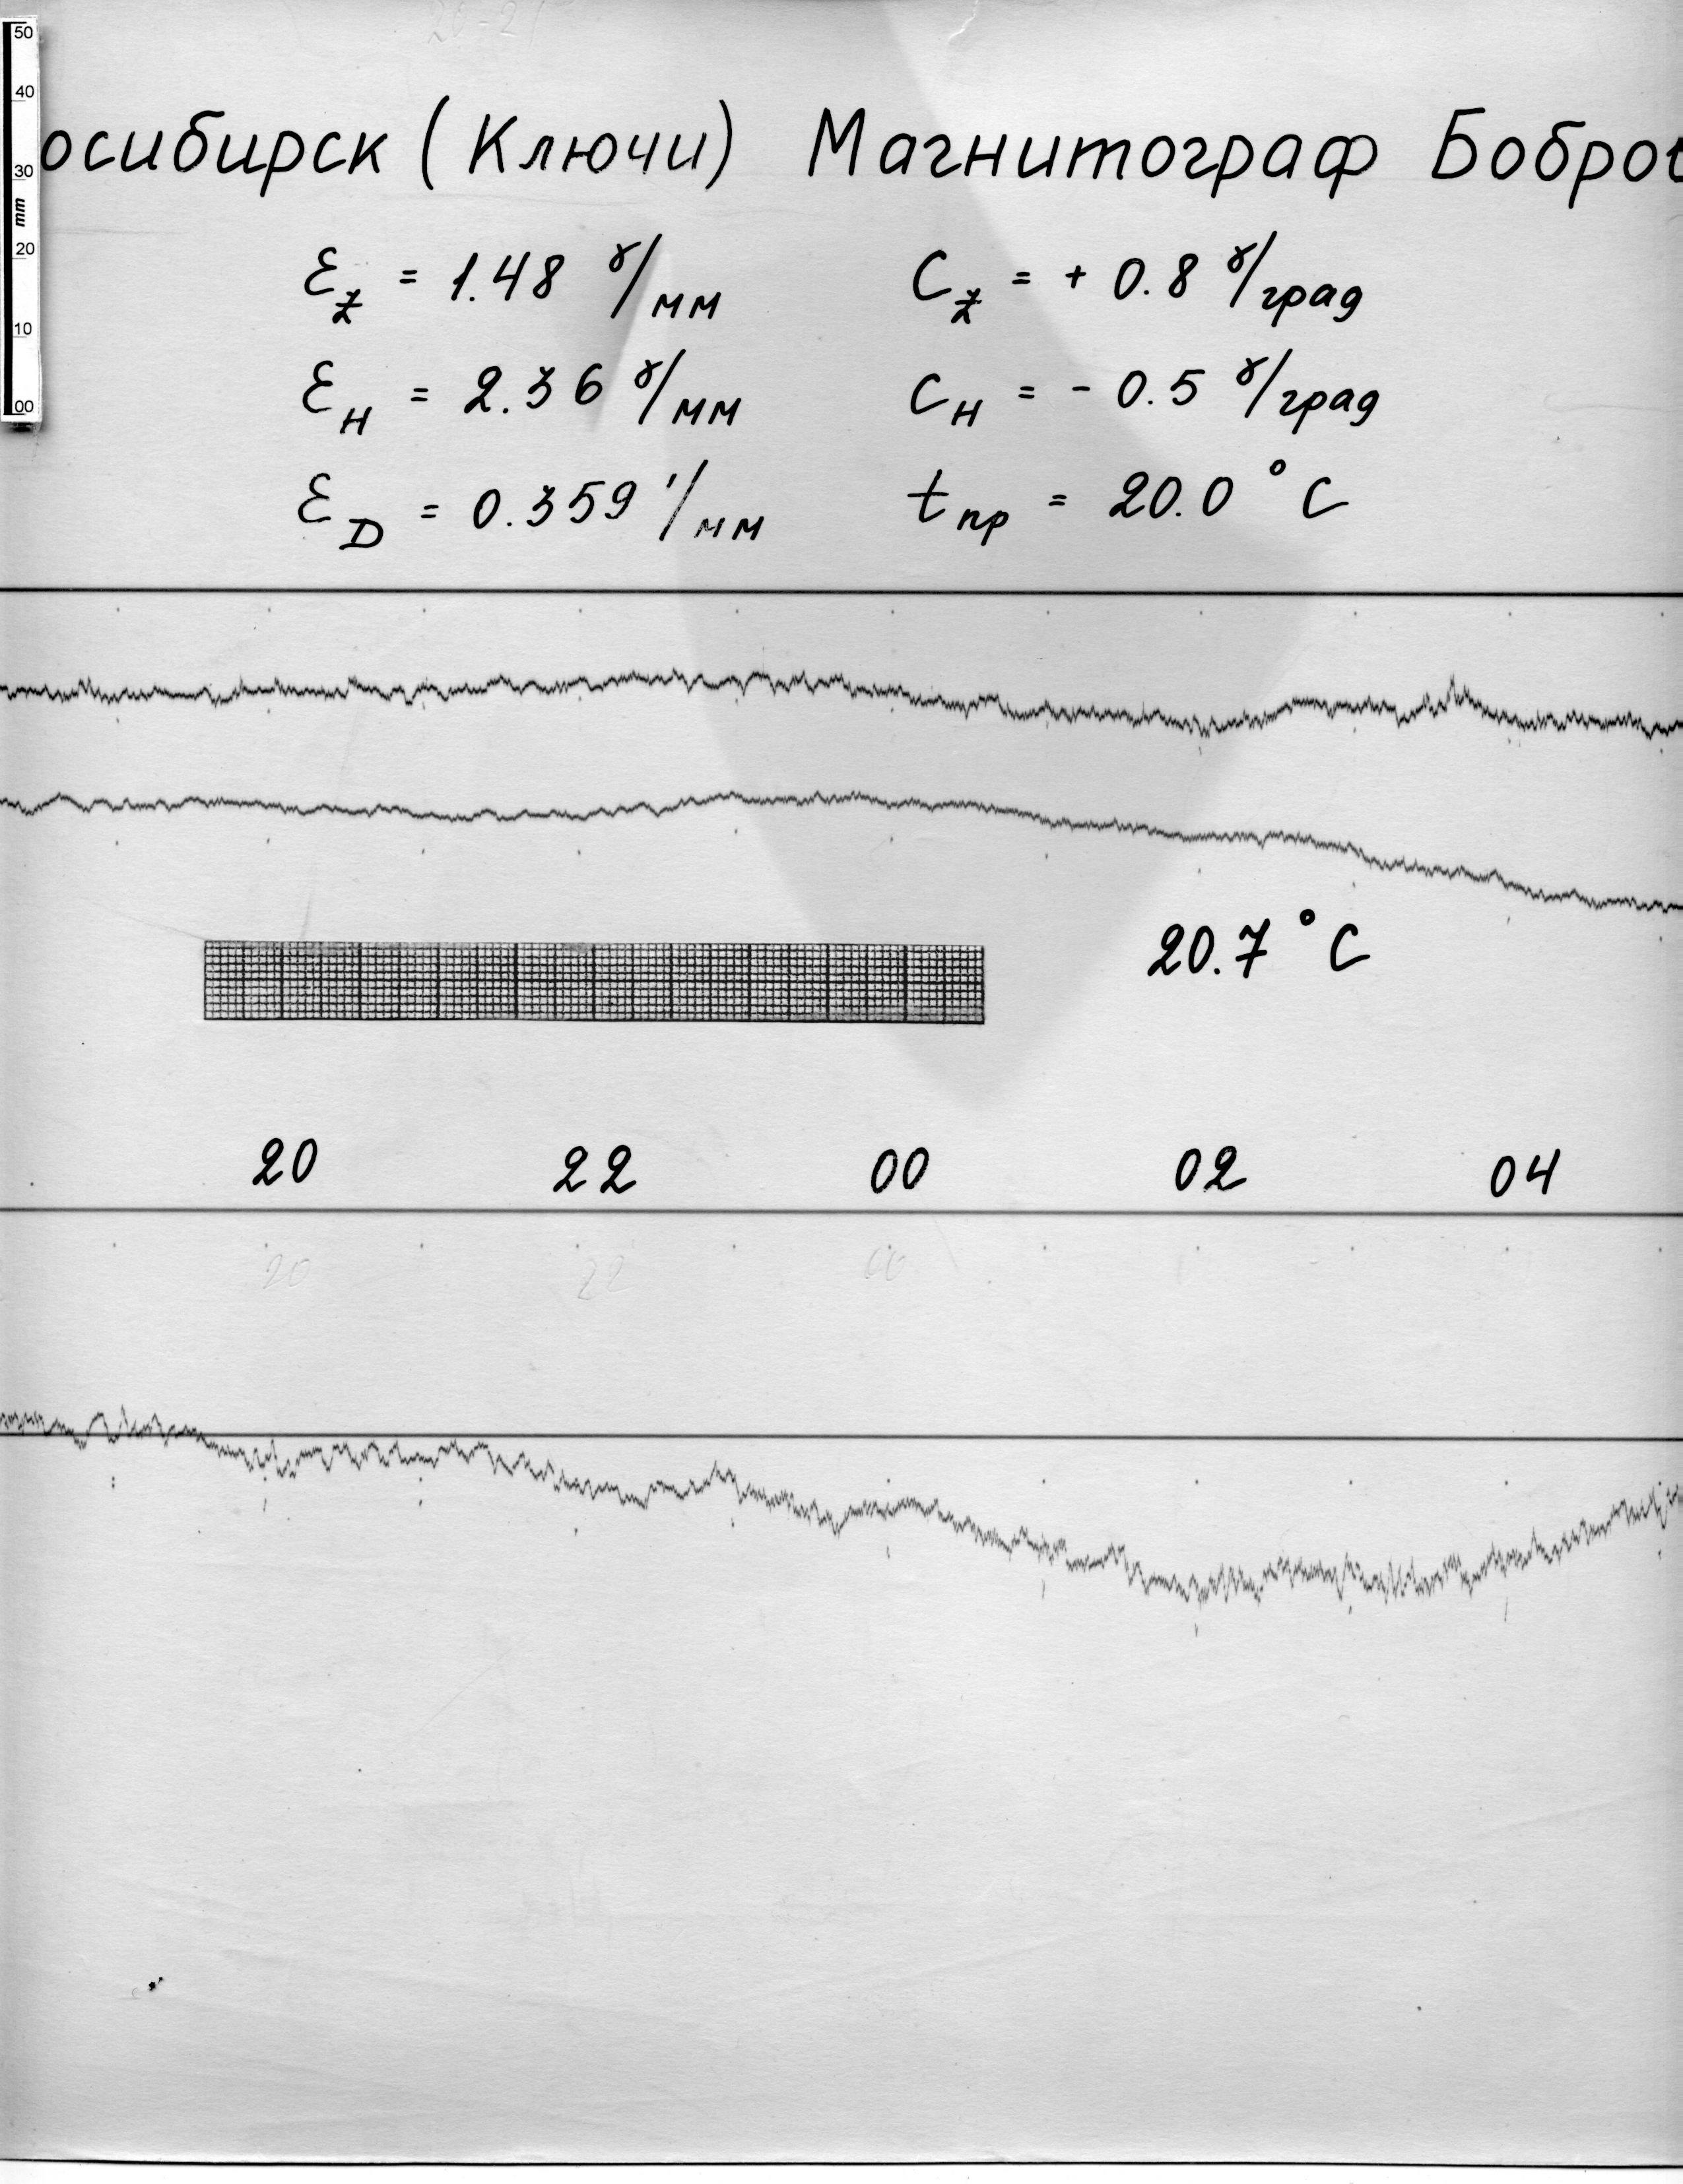 50
40
30
mm
20
10
00
осибирск (Ключи) Магнитограф Бобров
Ɛz = 1.48 γ/мм Cz = + 0.8 γ/град
ƐH = 2.36 γ/мм CH = - 0.5 γ/град
ƐD = 0.359 '/мм tпр = 20.0 °C
20.7 °C
20 22 00 02 04
20 22 00